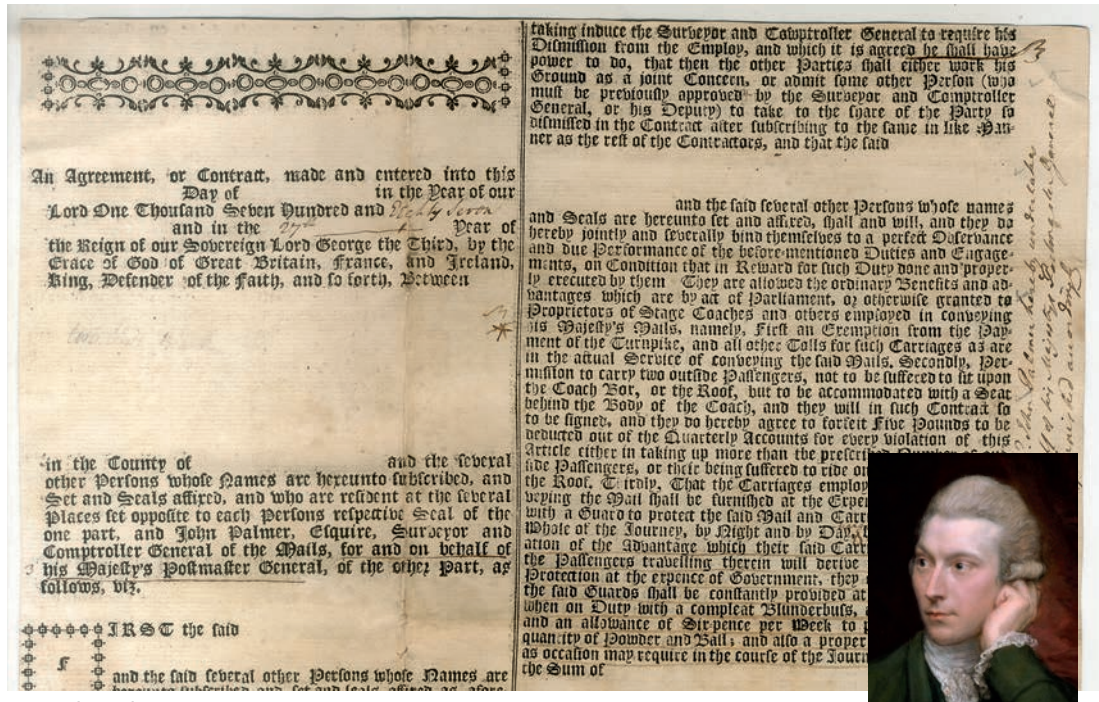 An Agreement, or Contract, made and entered into this
Day of in the Year of our
Lord One Thousand Seven Hundred and Eighty Seven
and in the 27th Year of
the Reign of our Sovereign Lord George the Third, by the
Grace of God of Great Britain, France, and Ireland,
King, Defender of the Faith, and so forth, Between
in the County of and the several
other Persons whose Names are hereunto subscribed, and
Set and Seals affixed, and who are resident at the several
Places set opposite to each Persons respective Seal of the
one part, and John Palmer, Esquire, Surveyor and
Comptroller General of the Mails, for and on behalf of
his Majesty's Postmaster General, of the other Part, as
follows, viz.
FIRST the said
and the said several other Persons whose Names are
hereunto subscribed and set and seals affixed as afore-
taking induce the Surveyor and Comptroller General to require his
Dismission from the Employ, and which it is agreed he shall have
power to do, that then the other Parties shall either work his
Ground as a joint Concern, or admit some other Person (who
must be previously approved by the Surveyor and Comptroller
General, or his Deputy) to take to the share of the Party so
dismissed in the Contract after subscribing to the same in like Man-
ner as the rest of the Contractors, and that the said
and the said several other Persons whose names
and Seals are hereunto set and affixed, shall and will, and they do
hereby jointly and severally bind themselves to a perfect Observance
and due Performance of the before-mentioned Duties and Engage-
ments, on Condition that in Reward for such Duty done and proper-
ly executed by them They are allowed the ordinary Benefits and ad-
vantages which are by act of Parliament, or otherwise granted to
Proprietors of Stage Coaches and others employed in conveying
his Majesty's Mails, namely, First an Exemption from the Pay-
ment of the Turnpike, and all other Tolls for such Carriages as are
in the actual Service of conveying the said Mails. Secondly, Per-
mission to carry two outside Passengers, not to be suffered to sit upon
the Coach Box, or the Roof, but to be accommodated with a Seat
behind the Body of the Coach, and they will in such Contract so
to be signed, and they do hereby agree to forfeit Five Pounds to be
deducted out of the Quarterly Accounts for every violation of this
Article either in taking up more than the prescribed Number of out-
side Passengers, or their being suffered to ride on
the Roof. Thirdly, That the Carriages employ
veying the Mail shall be furnished at the Expen
with a Guard to protect the said Mail and Carr
Whole of the Journey, by Night and by Day,
ation of the Advantage which their said Carr
the Passengers travelling therein will derive
Protection at the expence of Government, they
the said Guards shall be constantly provided at
when on Duty with a compleat Blunderbuss,
and an allowance of Six-pence per Week to p
quantity of Powder and Ball; and also a proper
as occasion may require in the course of the Journ
the Sum of
John Palmer hereby undertake
of his Majestys